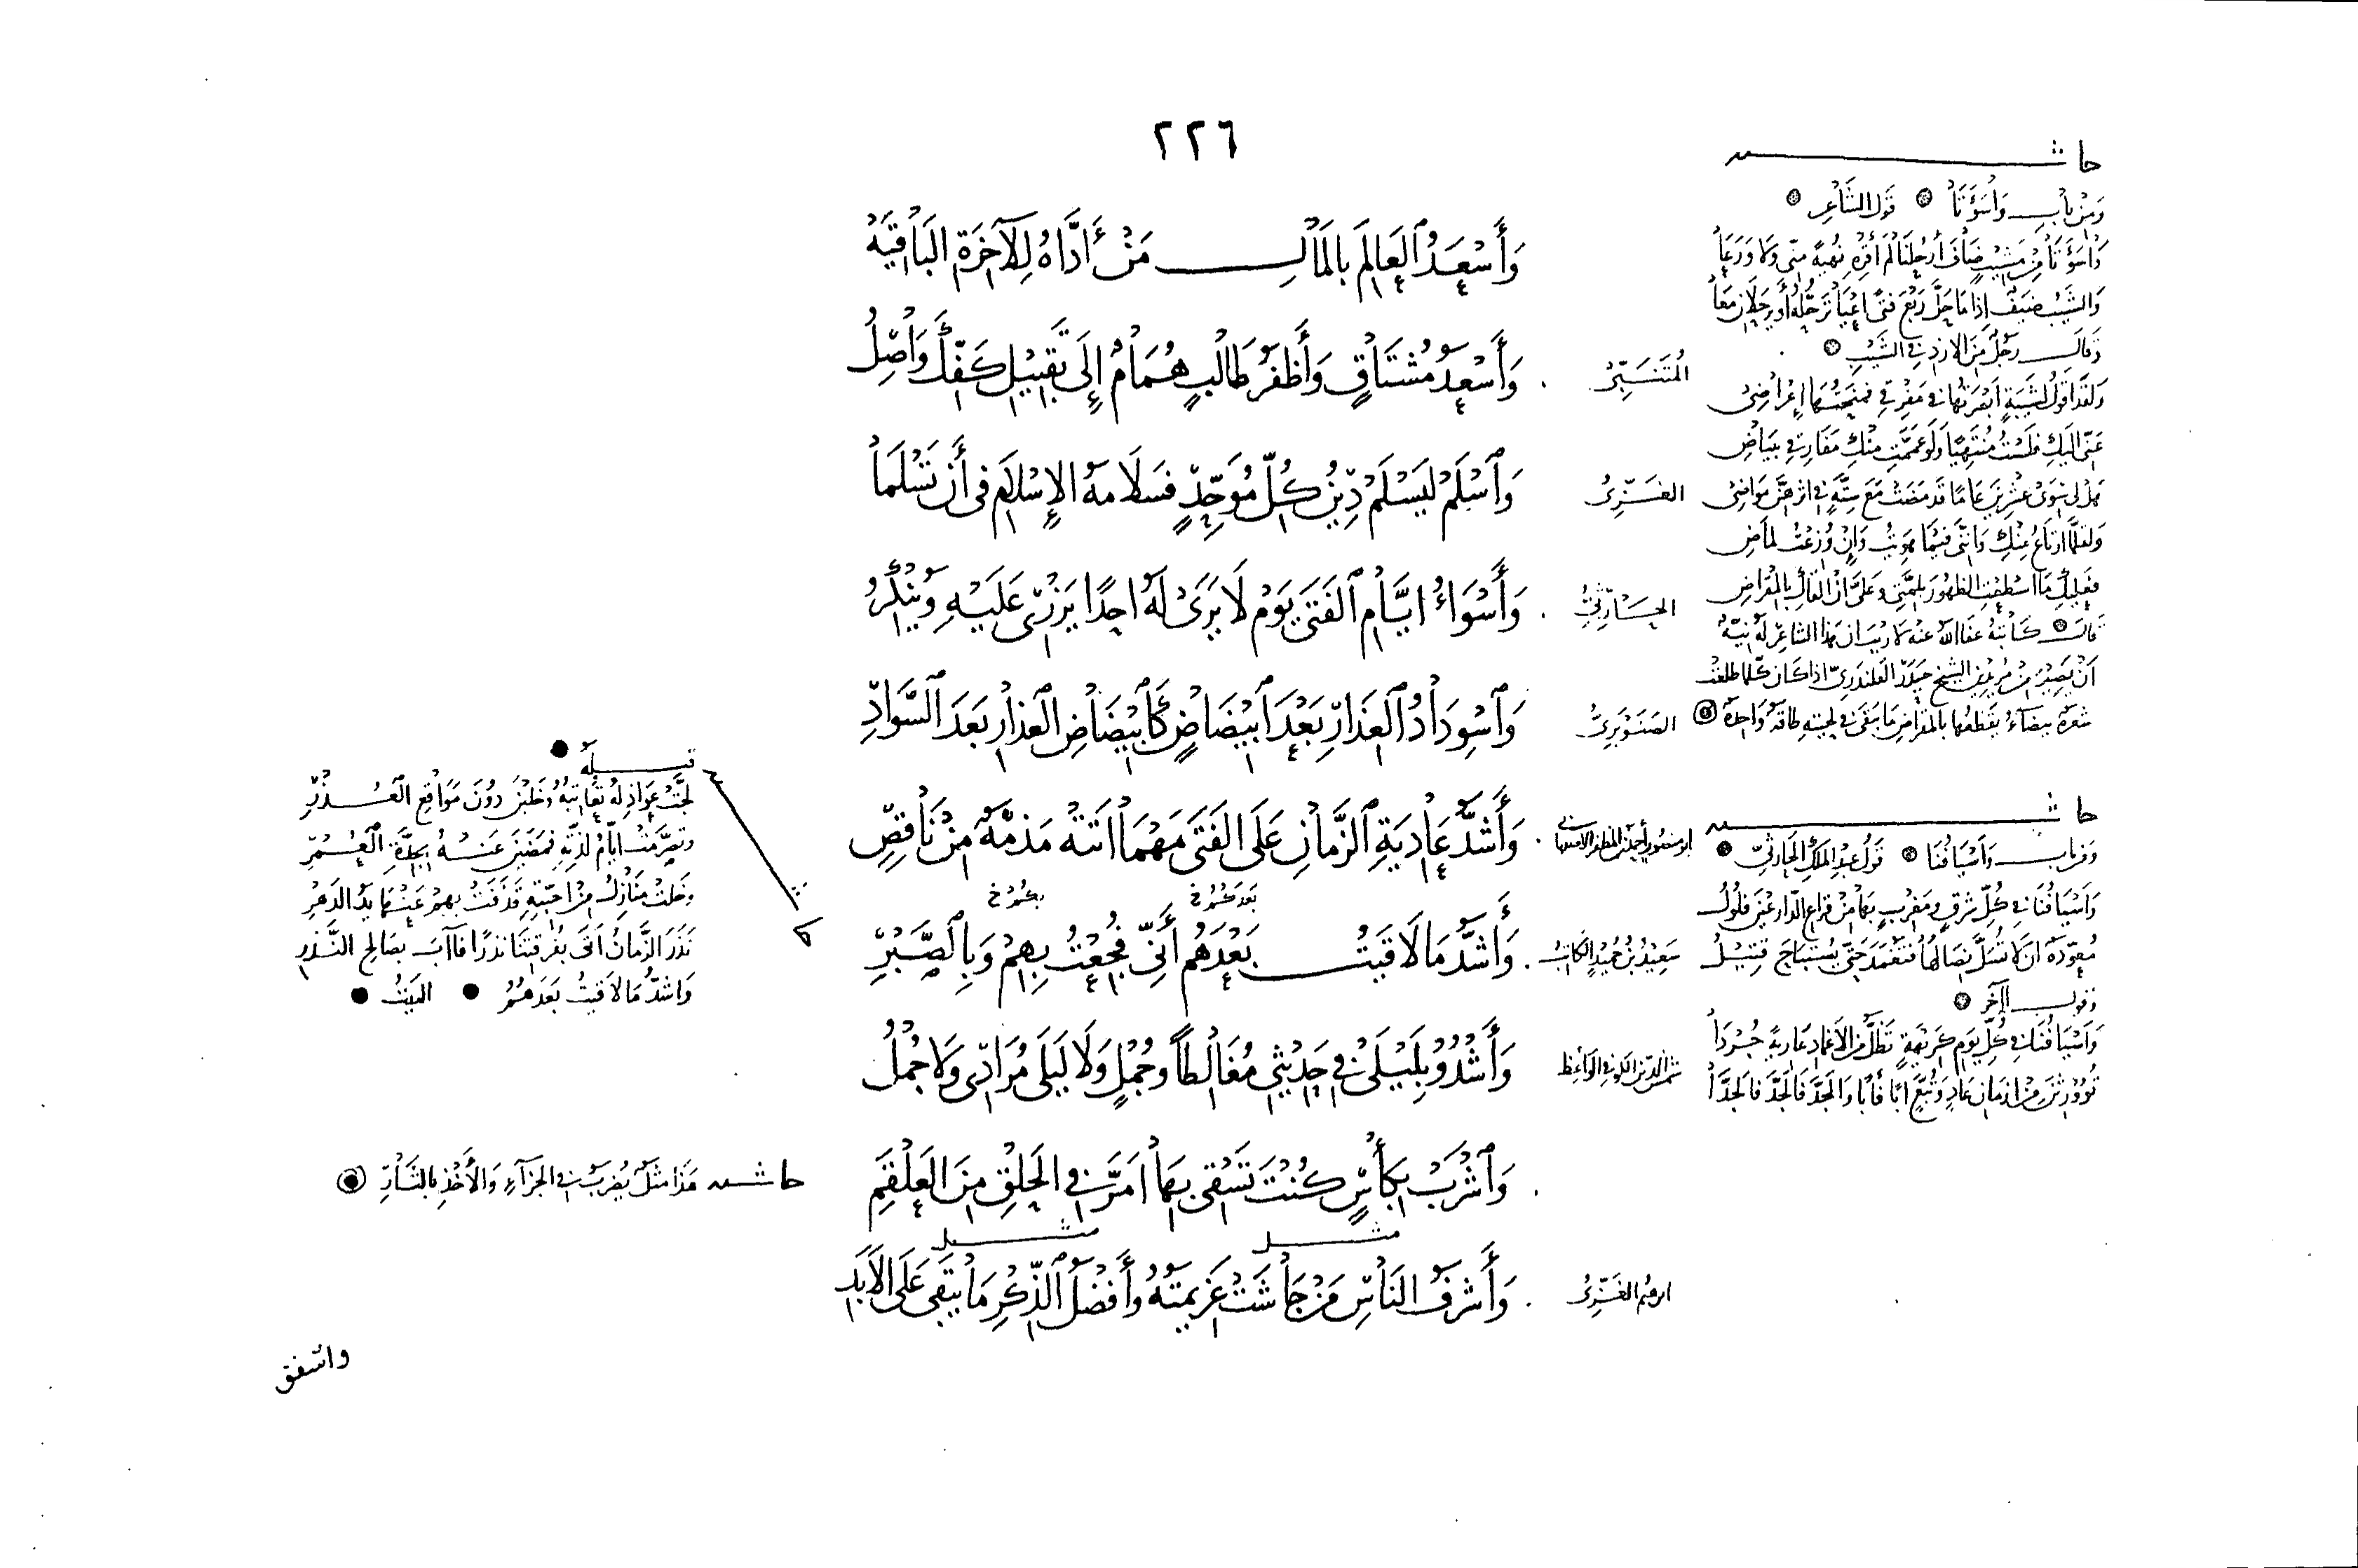 ٢٢٦
وَأَسْعَدُ ٱلعَالِمَ بِالمَالِ مَنْ أَدَّاهُ لِلآخِرَةِ البَاقِيَهْ
المُتَنَبِّي
وَأَسْعَدُ مُشْتَاقٍ وَأَظفَرُ طَالِبٍ هُمَامٌ إِلَى تَقبِيلِ كَفِّكَ وَاصِلُ
الغَزِّيُّ
وَٱسْلَمْ لِيَسْلَمَ دِيْنُ كُلِّ مُوَحِّدٍ فَسَلَامَةُ الإِسْلَامِ فِي أَن تَسْلَمَا
الحَارِثِيُّ
وَأَسْوَاءُ ايَّامِ ٱلفَتَى يَوْم لَا يَرَى لَهُ احِدًا يَزْرِي عَلَيْهِ وَيُنْكِرُ
الصَنَوْبَرِيُّ
وَٱسْوِدَادُ ٱلعِذَارِ بَعْدَ ٱبْيِضَاضٍ كَٱبْيِضَاضِ ٱلعِذَارِ بَعدَ ٱلسَّوَادِ
وَأَشَدُّ عَادِيَةِ ٱلزَّمَانِ عَلَى الفَتَى مَهْمَا اتَتهُ مَذَمَّةٌ مِنْ نَاقِصِ
سَعِيْدُ بنُ حُمَيْدٍ الكَاتِبُ
بَعدَكُمُ خ بكُمُ خ
وَأَشَدُّ مَا لَاقَيتُ بَعْدَهُم أَنِّي فُجِعْتُ بِهِمْ وَبِالصَّبْرِ
شمس الدين الكوفي الواعظ
وَأَشْدُوْ بِلَيْلَى فِي حَدِيْثِي مُغَالِطاً وَجُمْلٍ وَلَا لَيلَى مُرَادِي وَلَا جُمْلُ
وَٱشْرَبْ بِكَأْسٍ كُنْتَ تَسْقِي بِهَا امَرَّ فِي الحَلْقِ مِنَ العَلْقَمِ
مثل مثل
ابرهيم الغَزِّيُّ
وَأَشرَفُ النَاسِ مَنْ جَاشَتْ عَزِيمَتُهُ وَأَفضَلُ ٱلذِّكْرِ مَا يَبقَى عَلَى الأَبَدِ
واشفق
حاشية
وَمِنْ بَابِ وَاسَوْءَتَا قَولُ الشَّاعِرِ
وَاسَوْءَتَا مِنْ مَشِيْبٍ ضَافَ أَرحُلَنَا لَم أَقرِهِ نُهيَةً مِنِّي وَلَا وَرَعَا
وَالشَيْبُ ضَيفٌ إِذَا مَا حَلَّ رَبْعَ فَتًى اعْيَا تَرَحُّلُهُ أَو يَرحَلَانِ مَعَا
وَقَالَ رَجُلٌ مِنَ الازدِ فِي الشَّيْبِ
وَلَقَد اقُولُ لِشَيبَةٍ ابْصَرتُهَا فِي مَفرِقي فَمَنَحتُهَا إِعْرَاضِي
عَنِّي الَيكِ فَلَسْتُ مُنتَهِيًا وَلَو عَمَّمتِ مِنْكِ مَفَارِقِي بِبَيَاضِ
هَلْ لِي سِوَى عِشرِينَ عَامًا قَد مَضَتْ مَعَ سِتَّةٍ فِي اثرِهِنَّ مَوَاضِي
وَلَقَلَّمَا ارتَاعُ مِنْكِ وَانَّنِي فِيمَا هَوِيتُ وَإِنْ وُزِعْتُ لَمَاضِ
فَعَلَيكِ مَا اسْطَعتِ الظُهُورَ بِلِمَّتِي وَعَلَيَّ أَنْ أَلقَاكِ بِالمِقرَاضِ
قَالَ كَاتِبهُ عَفَا اللهُ عَنهُ لَا رَيْبَ ان هَذَا الشَاعِرَ لَهُ نِيَّةٌ
أَنْ يَصِيْرَ مِنْ مُرِيْدِي الشيخ حَيدَر القلندَرِيّ اذا كَانَ كُلَّمَا طَلعَتْ
شَعرَة بَيضَاءُ يَقطعُهَا بالمقراضِ مَا يَبقَى فِي لِحيَتِهِ طَاقَة وَاحِدَة
حاشية
وَمِن بَابِ وَأَسْيَافُنَا قَولُ عَبْدِ المَلِكِ الحَارِثِيِّ
وَأَسْيَافُنَا فِي كُلِّ شَرقٍ وَمَغرِبٍ بِهَا مِنْ قِرَاعِ الدَّارِعِيْنَ فُلُولُ
مُعَوَّدَة أَن لَا تُسَلَّ نِصَالُهَا فَتُغمَدَ حَتَّى يُستَبَاحَ قَتِيْلُ
وَقول الآخَر
وَأَسْيَافُنَا فِي كُلِّ يَوم كَرِيْهَةٍ تَظَلُّ مِنَ الأَغمَادِ عَارِيَةً جُرْدَا
تُوُورِثْنَ مِنْ ازمَانِ عَادٍ وَتُبَّعٍ ابًا فَأَبًا وَالجَدّ فَالجَدّ فَالجَدَّا
قبله
لَجَّتْ عَوَاذِلُهُ تُعَاتِبُهُ وَخَلَيْنَ دُونَ مَوَاقِعِ العُذْرِ
وَتَصَرَّمَتْ ايَّامُ لَذَّتِهِ فَمَضَيْنَ عَنْهُ بِجِدَّةِ العُمْرِ
وَخَلَتْ مَنَازِلُ مِنْ احِبَّتِهِ قَذَفَتْ بِهِمْ عَنْهَا يَدُ الدَهْرِ
نَذَرَ الزَمَانُ
وَاشدُّ مَا لَاقَيتُ بَعدَهُمُ البَيْتُ
حاشية هَذَا مَثَلٌ يُضْرَبُ فِي الجَزَآءِ وَالأَخْذِ بِالثَّأْرِ